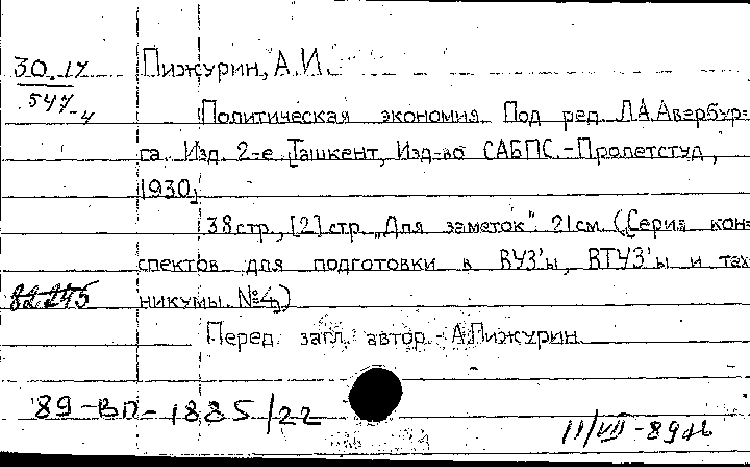 30.17
547-4
Пижурин, А.И.
Политическая экономия. Под ред. Л.А.Авербур-
га. Изд. 2-е. Ташкент, Изд-во САБПС.-Пролетстуд,
1930,
38стр., [2] стр. „Для заметок". 21см. (Серия кон-
спектов для подготовки в ВУЗ'ы, ВТУЗ'ы и тех
никумы. №4)
82.245
Перед загл. автор - А.Пижурин
89-ВП-1885/22
11/VII-89